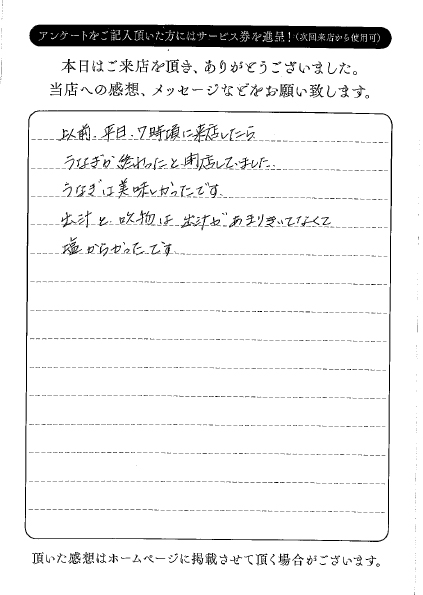 アンケートをご記入頂いた方にはサービス券を進呈！（次回来店から使用可）
本日はご来店を頂き、ありがとうございました。
当店への感想、メッセージなどをお願い致します。
以前、平日、7時頃に来店したら
うなぎが終わったと閉店していました。
うなぎは美味しかったです。
出汁と吸物は出汁があまりきいてなくて
塩からかったです。
頂いた感想はホームページに掲載させて頂く場合がございます。